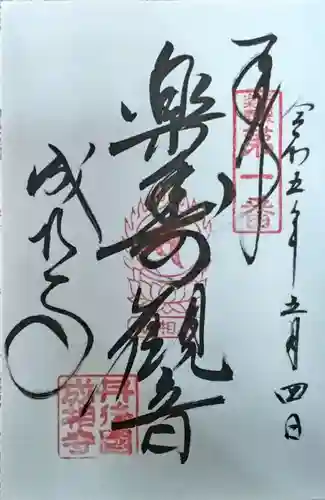 奉拝
第一番
令和五年五月四日
楽寿観音
成相寺
丹後國
成相寺